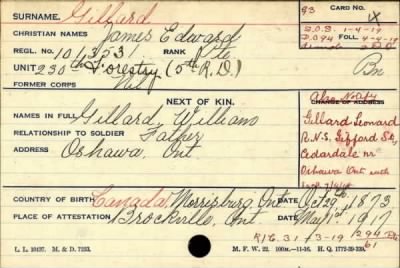 SURNAME. Gillard
CHRISTIAN NAMES James Edward
REGL. NO. 1013531 RANK Pte
UNIT 230th Forestry (5th R.D.) Bn
FORMER CORPS Nil
93 CARD NO.
S.O.S. 1-4-19
D.O.94 FOLL. 4-4-19
NEXT OF KIN.
NAMES IN FULL Gillard, William
RELATIONSHIP TO SOLDIER Father
ADDRESS Oshawa, Ont
Also Notify
CHANGE OF ADDRESS
Gillard Leonard
R.N.S. Gifford St,
Cedardale nr
Oshawa Ont
COUNTRY OF BIRTH Canada, Morrisburg, Ont DATE Oct 29th 1873
PLACE OF ATTESTATION Brockville, Ont DATE May 1st 1917
R/C. 31/3-19 294
61
L. L. 10437. M. & D. 7233. M. F. W. 22. 100m.—11-16. H. Q. 1772-39-339.